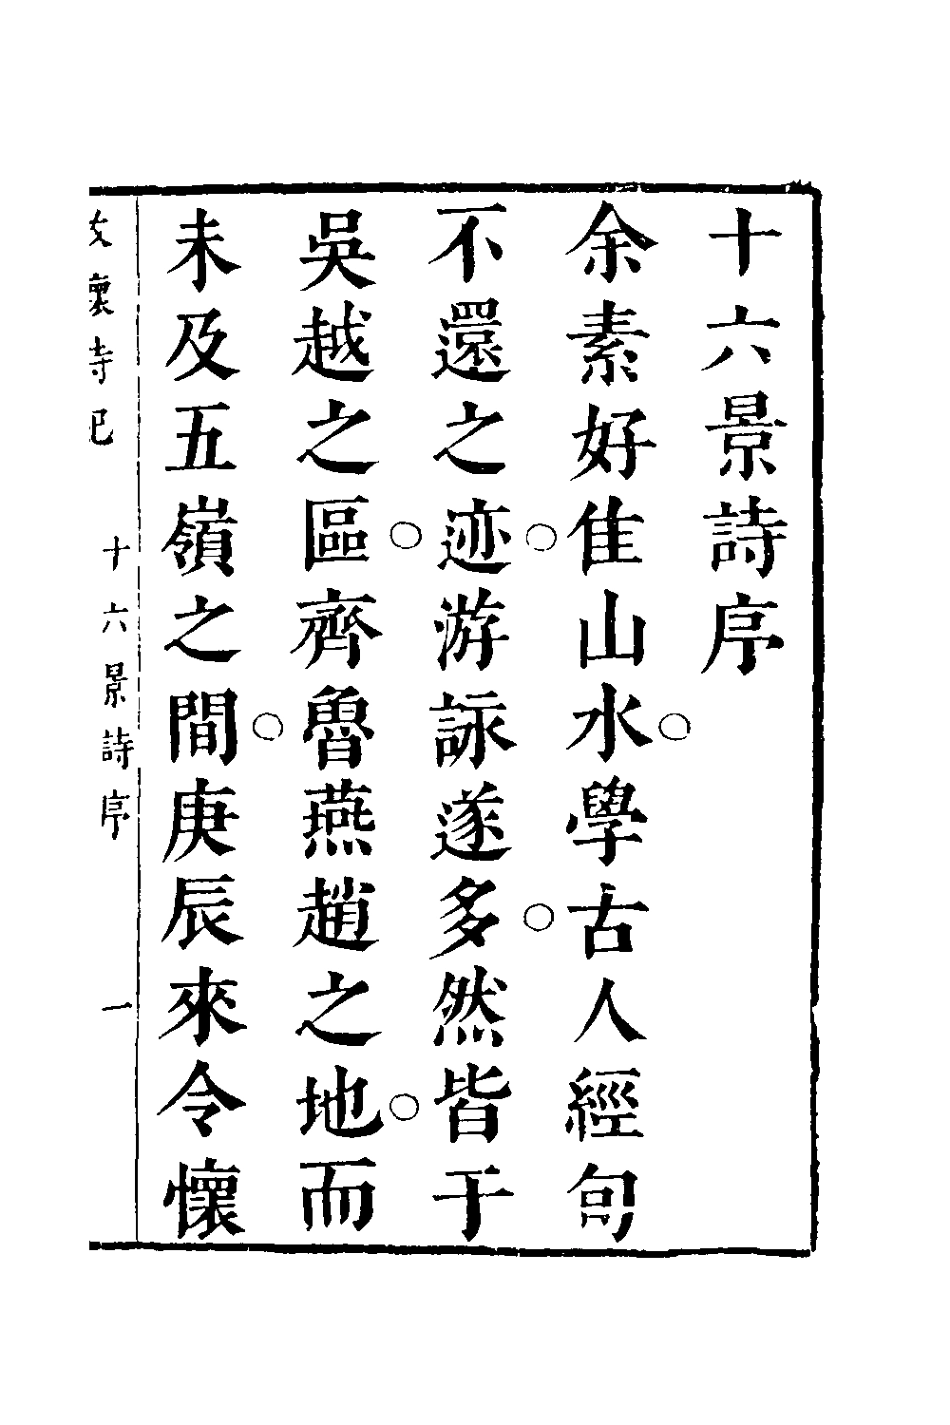 十六景詩序
余素好佳山水學古人經旬
不還之迹游詠遂多然皆于
吳越之區齊魯燕趙之地而
未及五嶺之間庚辰來令懷
十六景詩序
一